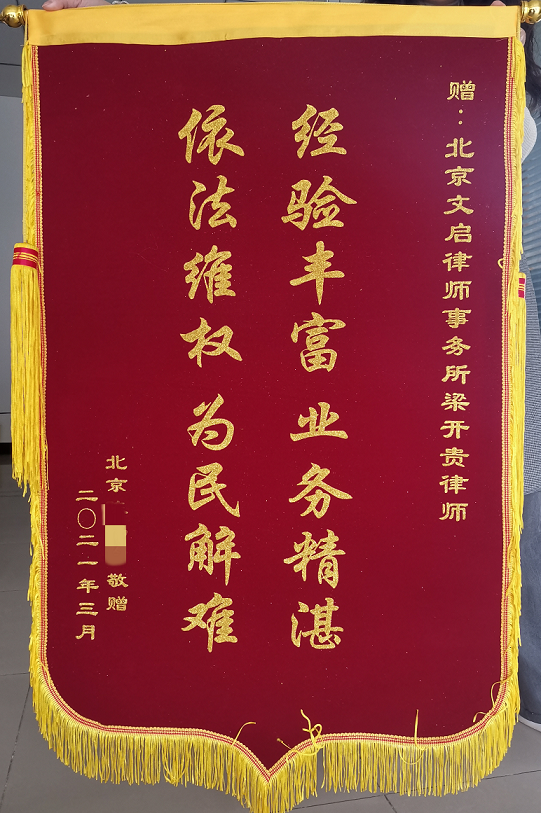 赠：北京文启律师事务所梁开贵律师
经验丰富 业务精湛
依法维权 为民解难
北京 敬赠
二〇二一年三月